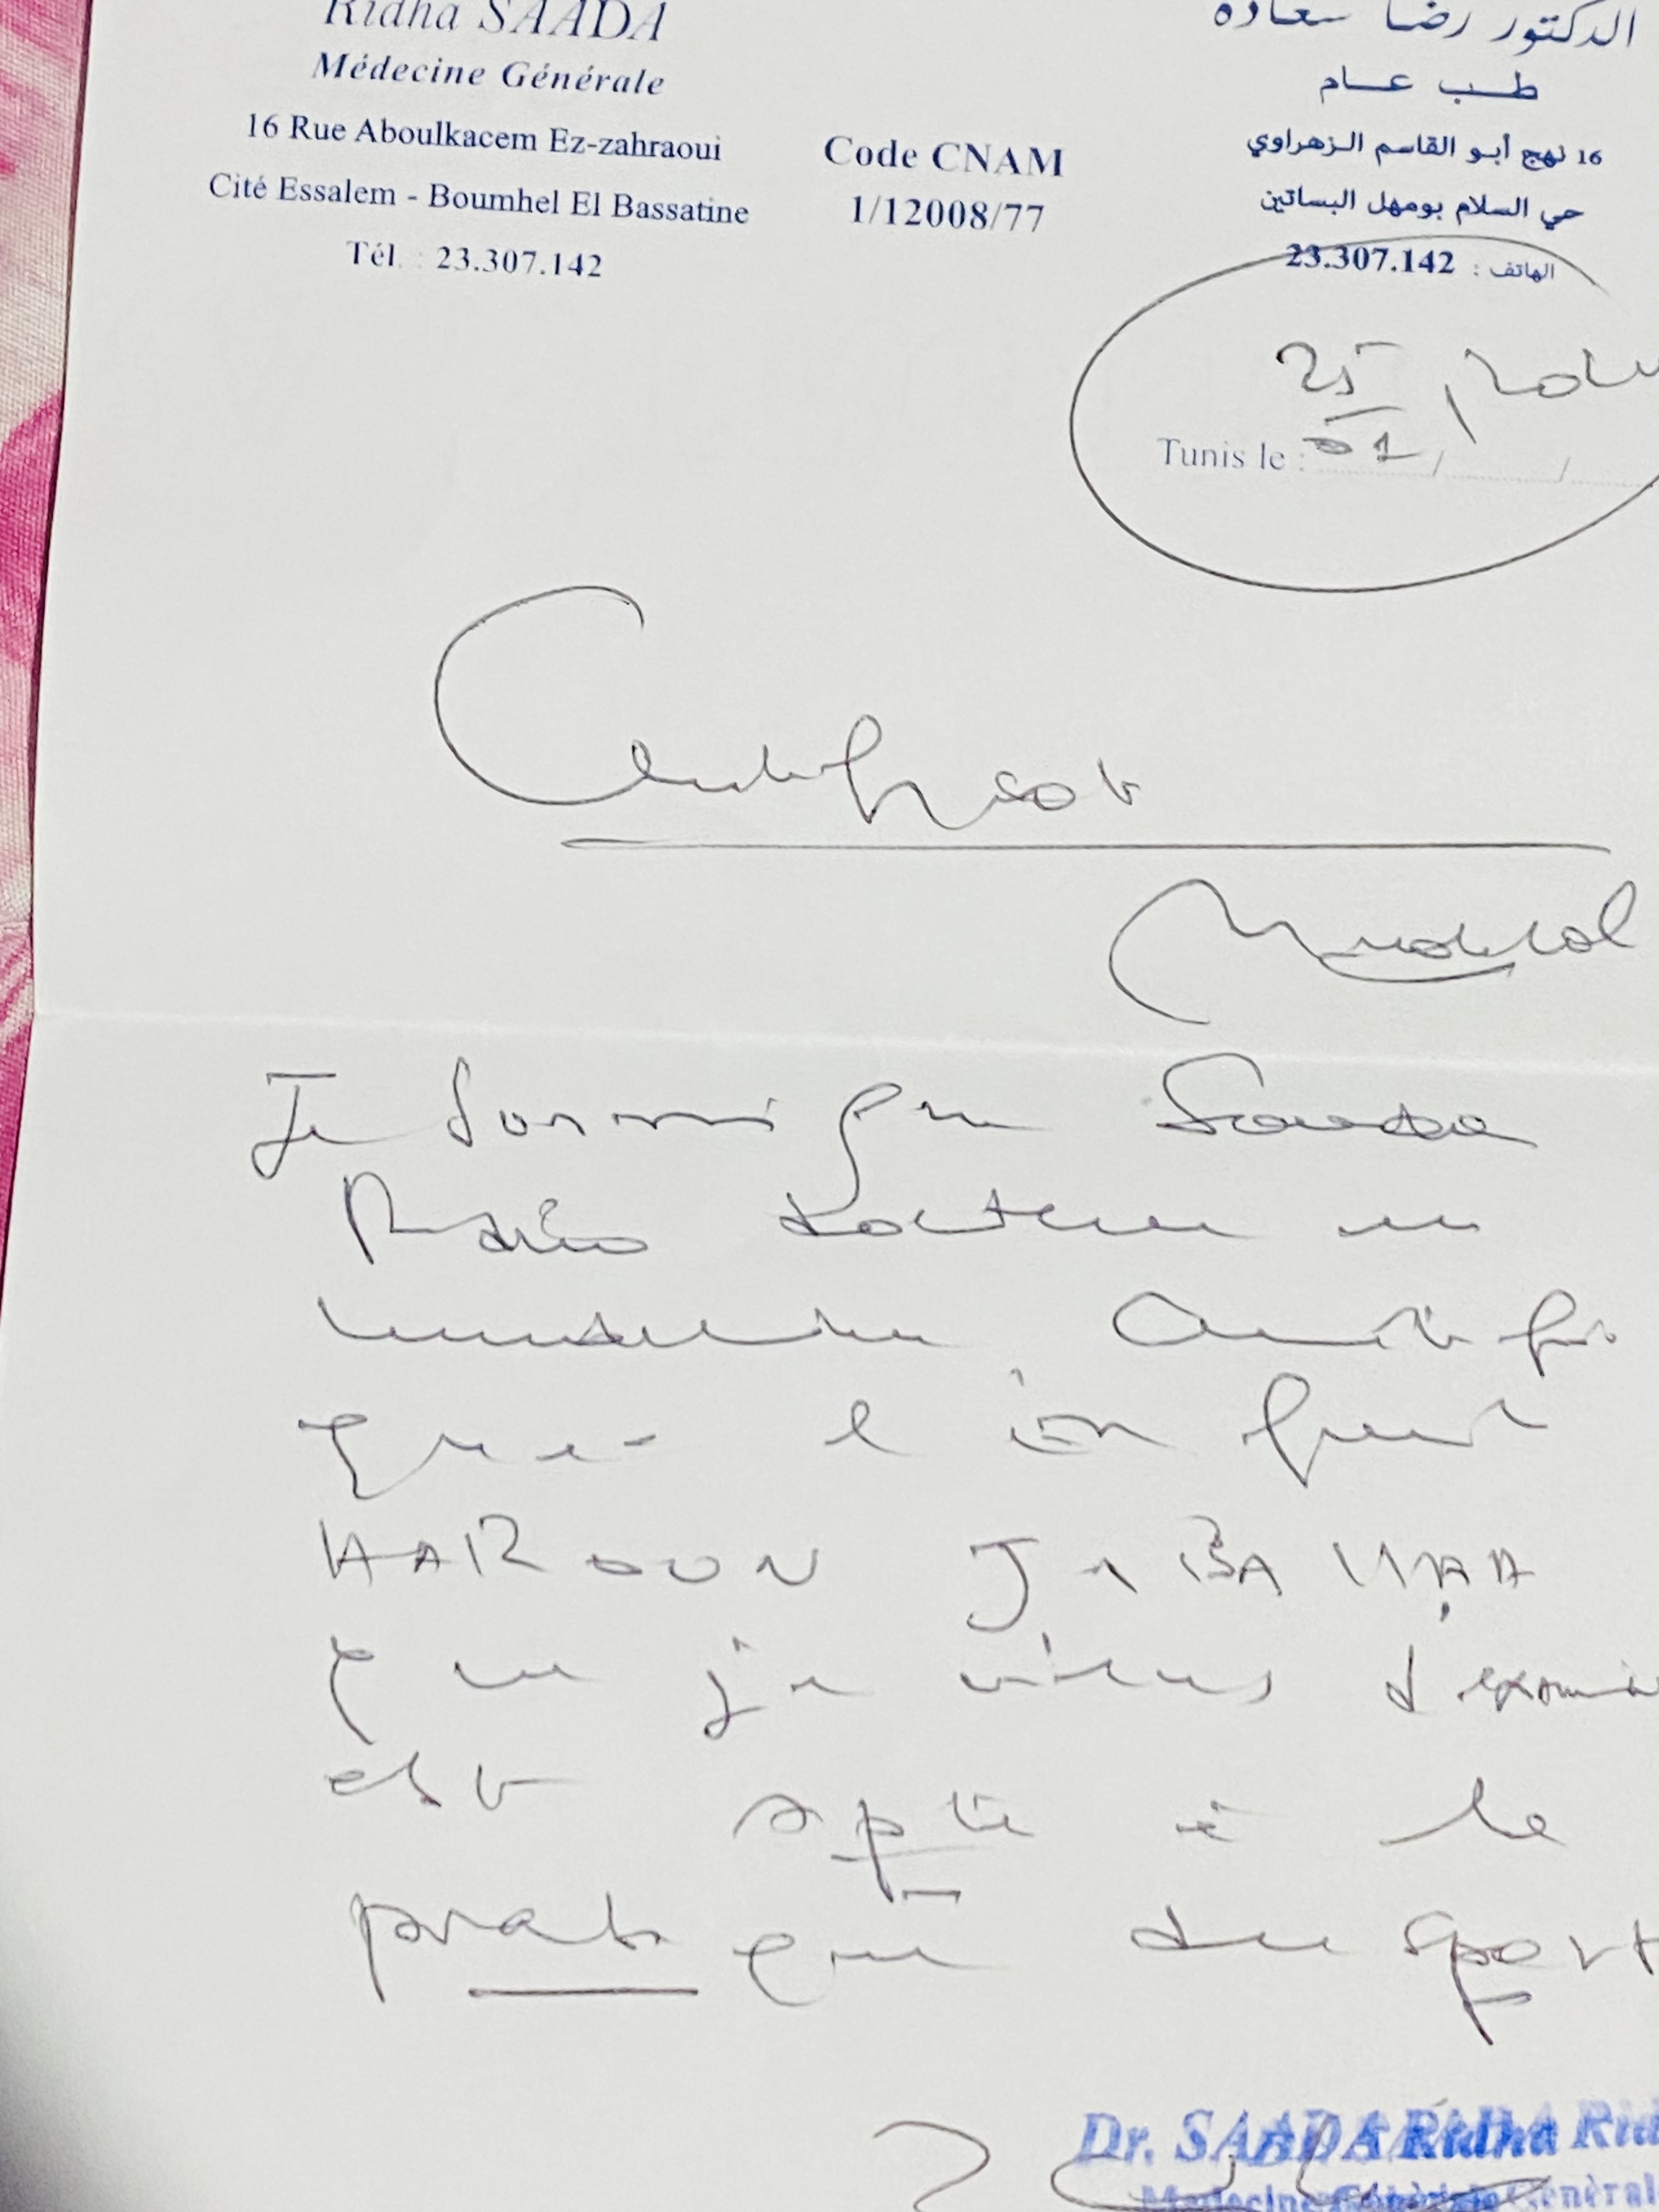 Ridha SAADA
Médecine Générale
16 Rue Aboulkacem Ez-zahraoui
Cité Essalem - Boumhel El Bassatine
Tél. : 23.307.142
Code CNAM
1/12008/77
الدكتور رضا سعادة
طب عام
16 نهج أبو القاسم الزهراوي
حي السلام بومهل البساتين
الهاتف : 23.307.142
25
Tunis le : 01
Certificat
Médical
Je soussigné Saada
Ridha docteur en
médecine certifie
que l'enfant
HAROUN
que je viens d'exami
est apte à la
pratique du sport
Dr. SAADA Ridha
Médecine Générale